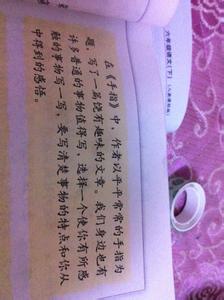 在《手指》中，作者以平平常常的手指为
题，写了一篇饶有趣味的文章。我们身边也有
许多普通的事物值得写，选择一个使你有所感
触的事物写一写，要写清楚事物的特点和你从
中得到的感悟。
六年级语文(下)